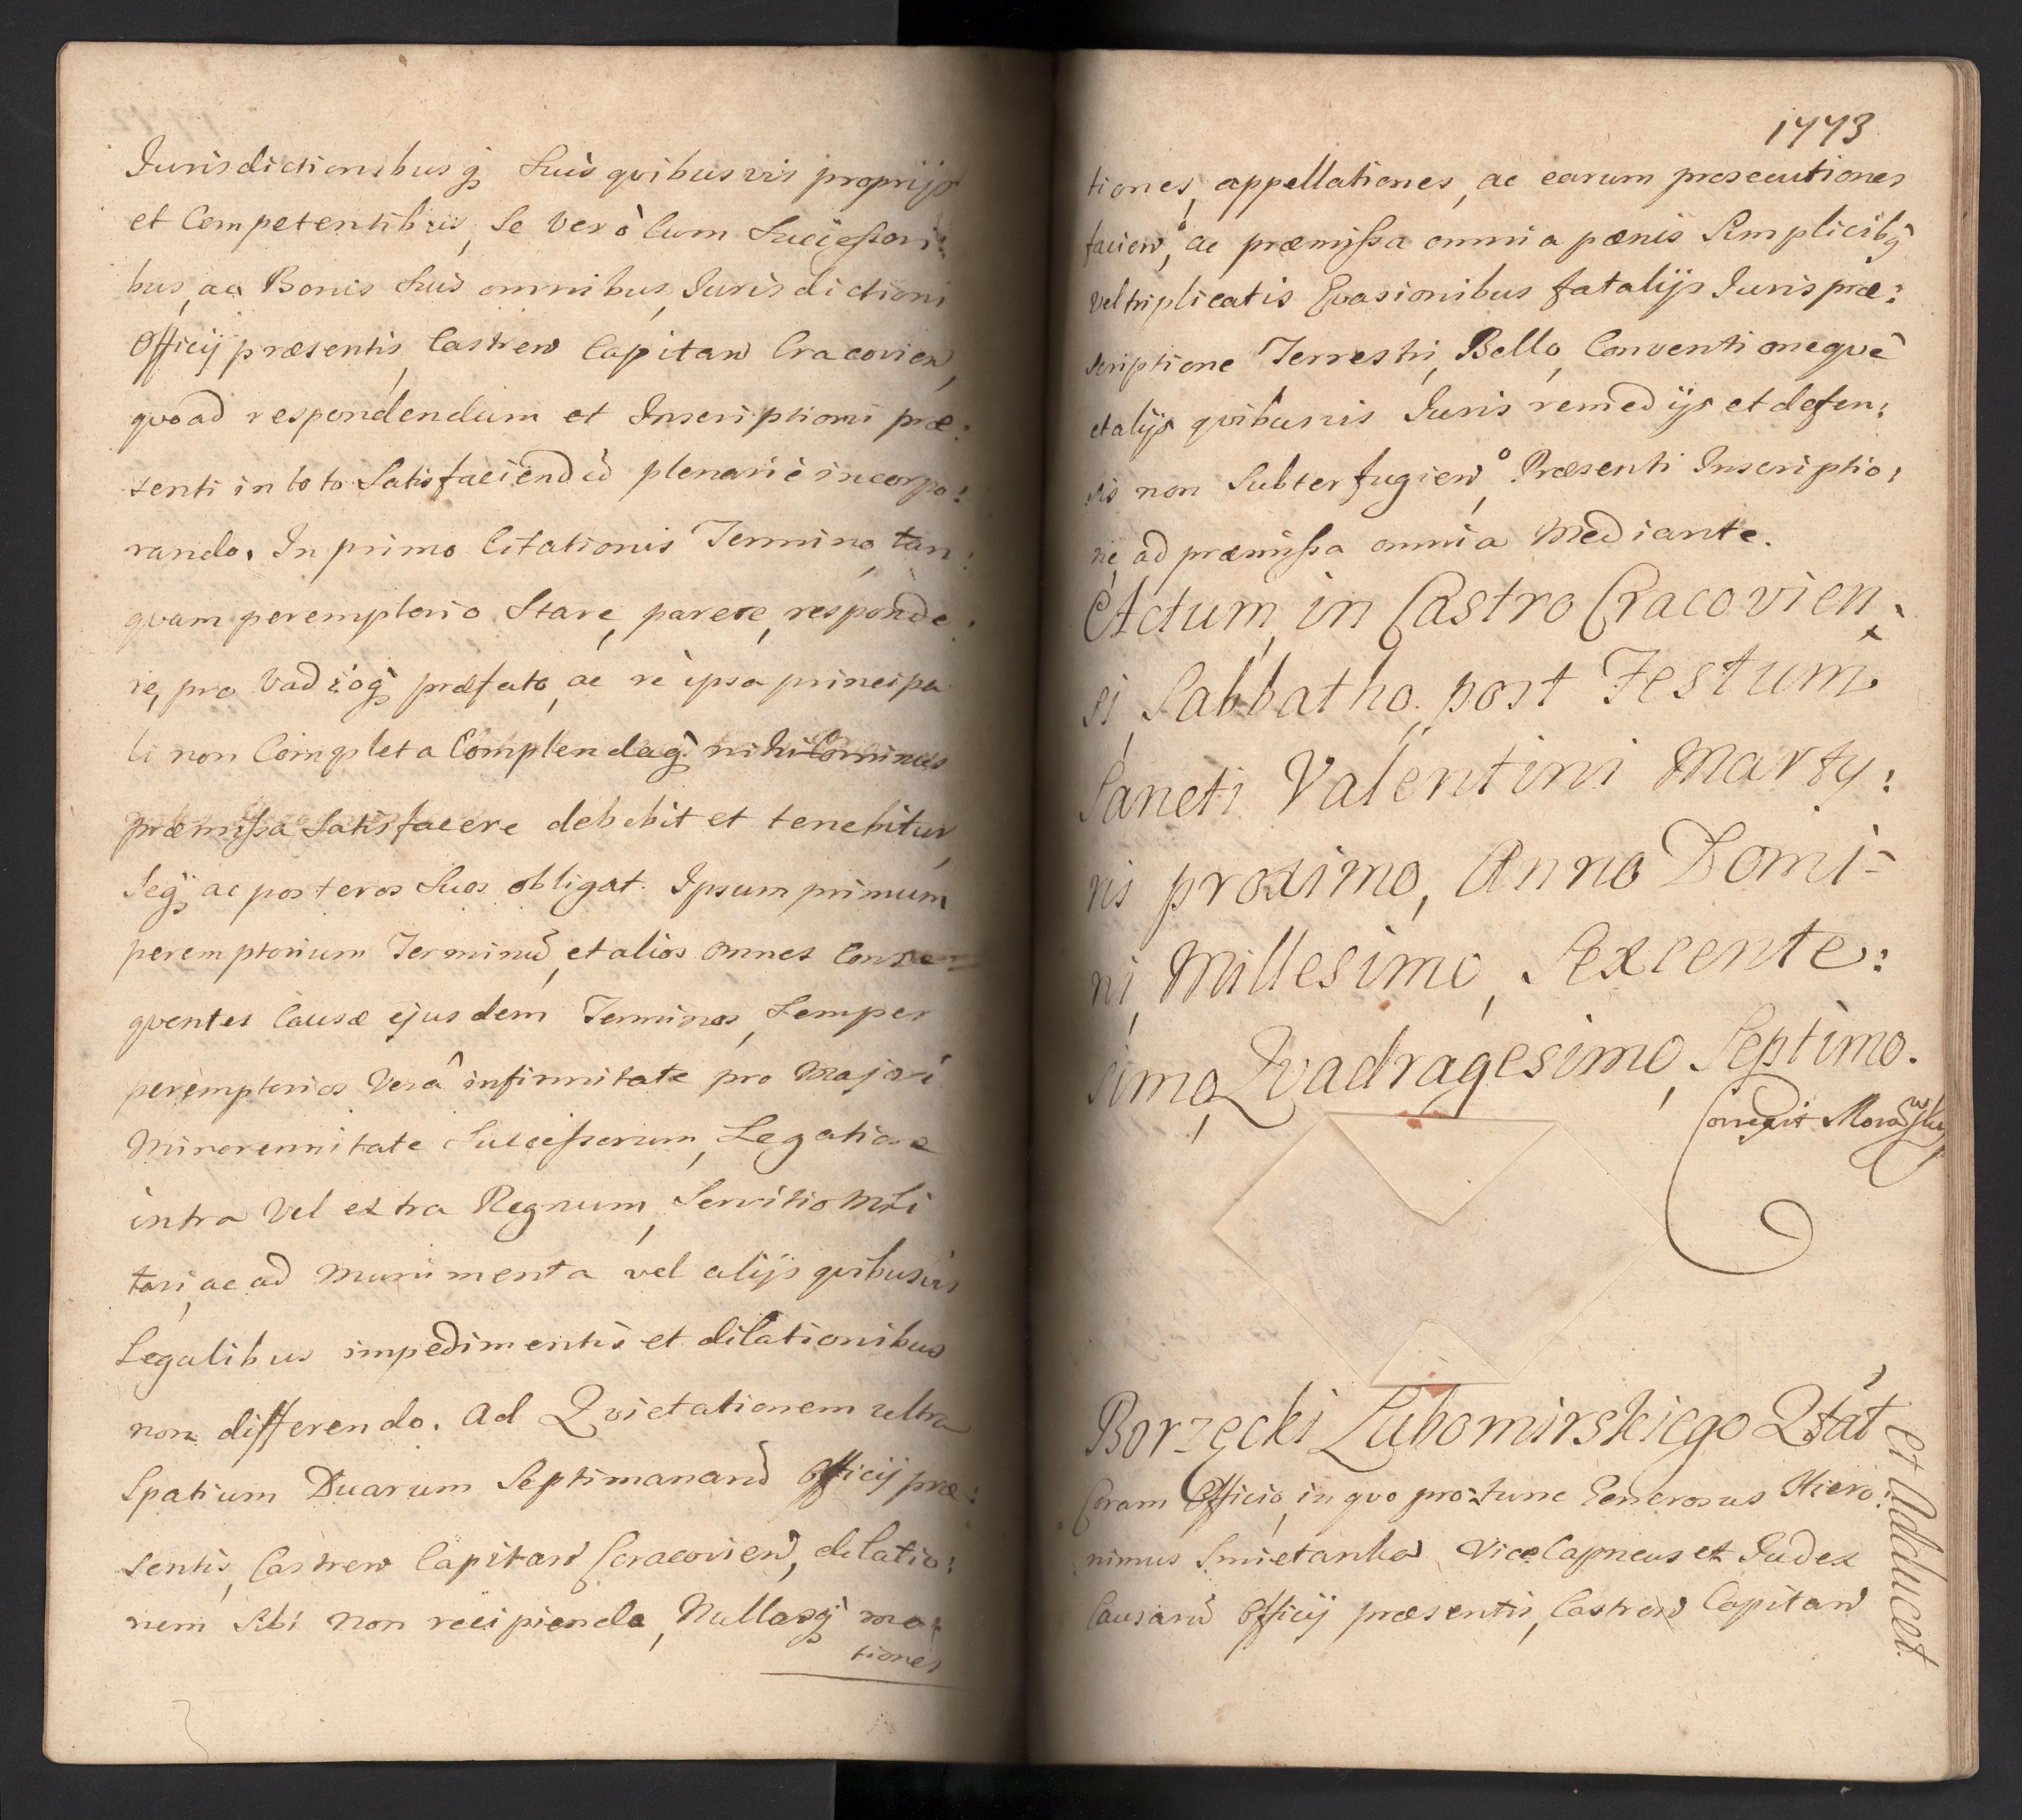 Jurisdictionibusq; Suis qvibusvis proprijs
et Competentibus, Se Verò Cum Succeßori:
bus, ac Bonis Suis omnibus, Jurisdictioni
Officij præsentis, Castren Capitan Cracovien,
qvoad respondendum et Inscriptioni præ:
senti in toto Satisfaciend plenariè incorpo:
rando. In primo Citationis Termino, tan:
qvam peremptorio Stare, parere, responde:
re, pro Vadioq; præfato, ac re ipsa principa
li non Completa Complendaq; nihilominus
præmißa Satisfacere debebit et tenebitur,
Seq; ac posteros Suos obligat. Ipsum primum
peremptorium Terminũ, et alios omnes Conse=
qventes Causæ ejusdem Terminos, Semper
peremptorios Verâ infirmitate pro Majori
Minorennitate Succeßorum, Legatione
intra Vel extra Regnum, Servitio Mili
tari, ac ad Munimenta vel alijs qvibusvis
Legalibus impedimentis et dilationibus
non differendo. Ad Qvietationem ultra
Spatium Duarum Septimanarũ Officij præ:
sentis, Castren Capitan Cracovien, dilatio:
nem Sibi non recipiendo, Nullasq; mo:
tiones
1773
tiones, appellationes, ac earum prosecutiones
facien°, ac præmißa omnia pœnis Simplicibq;
vel triplicatis Evasionibus fatalijs Juris præ:
scriptione Terrestri, Bello, Conventioneqve
et alijs qvibusvis Juris remedijs et defen:
sis non Subterfugien°, Præsenti Inscriptio:
ne ad præmißa omnia Mediante.
Actum, in Castro Cracovien:
si, Sabbatho, post Festum
Sancti Valentini Marty:
ris proximo, Anno Domi=
ni, Millesimo, Sexcente:
simo, Qvadragesimo, Septimo.
Correxit
Borzęcki Lubomirskiego Qtat
et Adducet.
Coram Officio, in qvo pro tunc Generosus Hiero:
nimus Smietanka Vice Capneus et Judex
Causarũ Officij præsentis, Castren Capitan